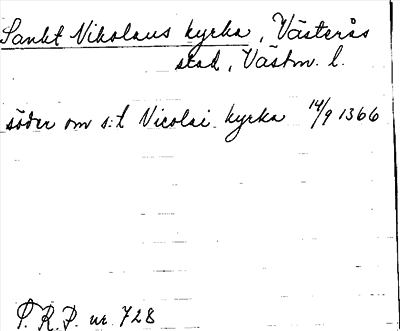 Sankt Nikolaus kyrka, Västerås
stad, Västm. l.
söder om s:t Nicolai kyrka 14/9 1366
P. R. P. nr 728